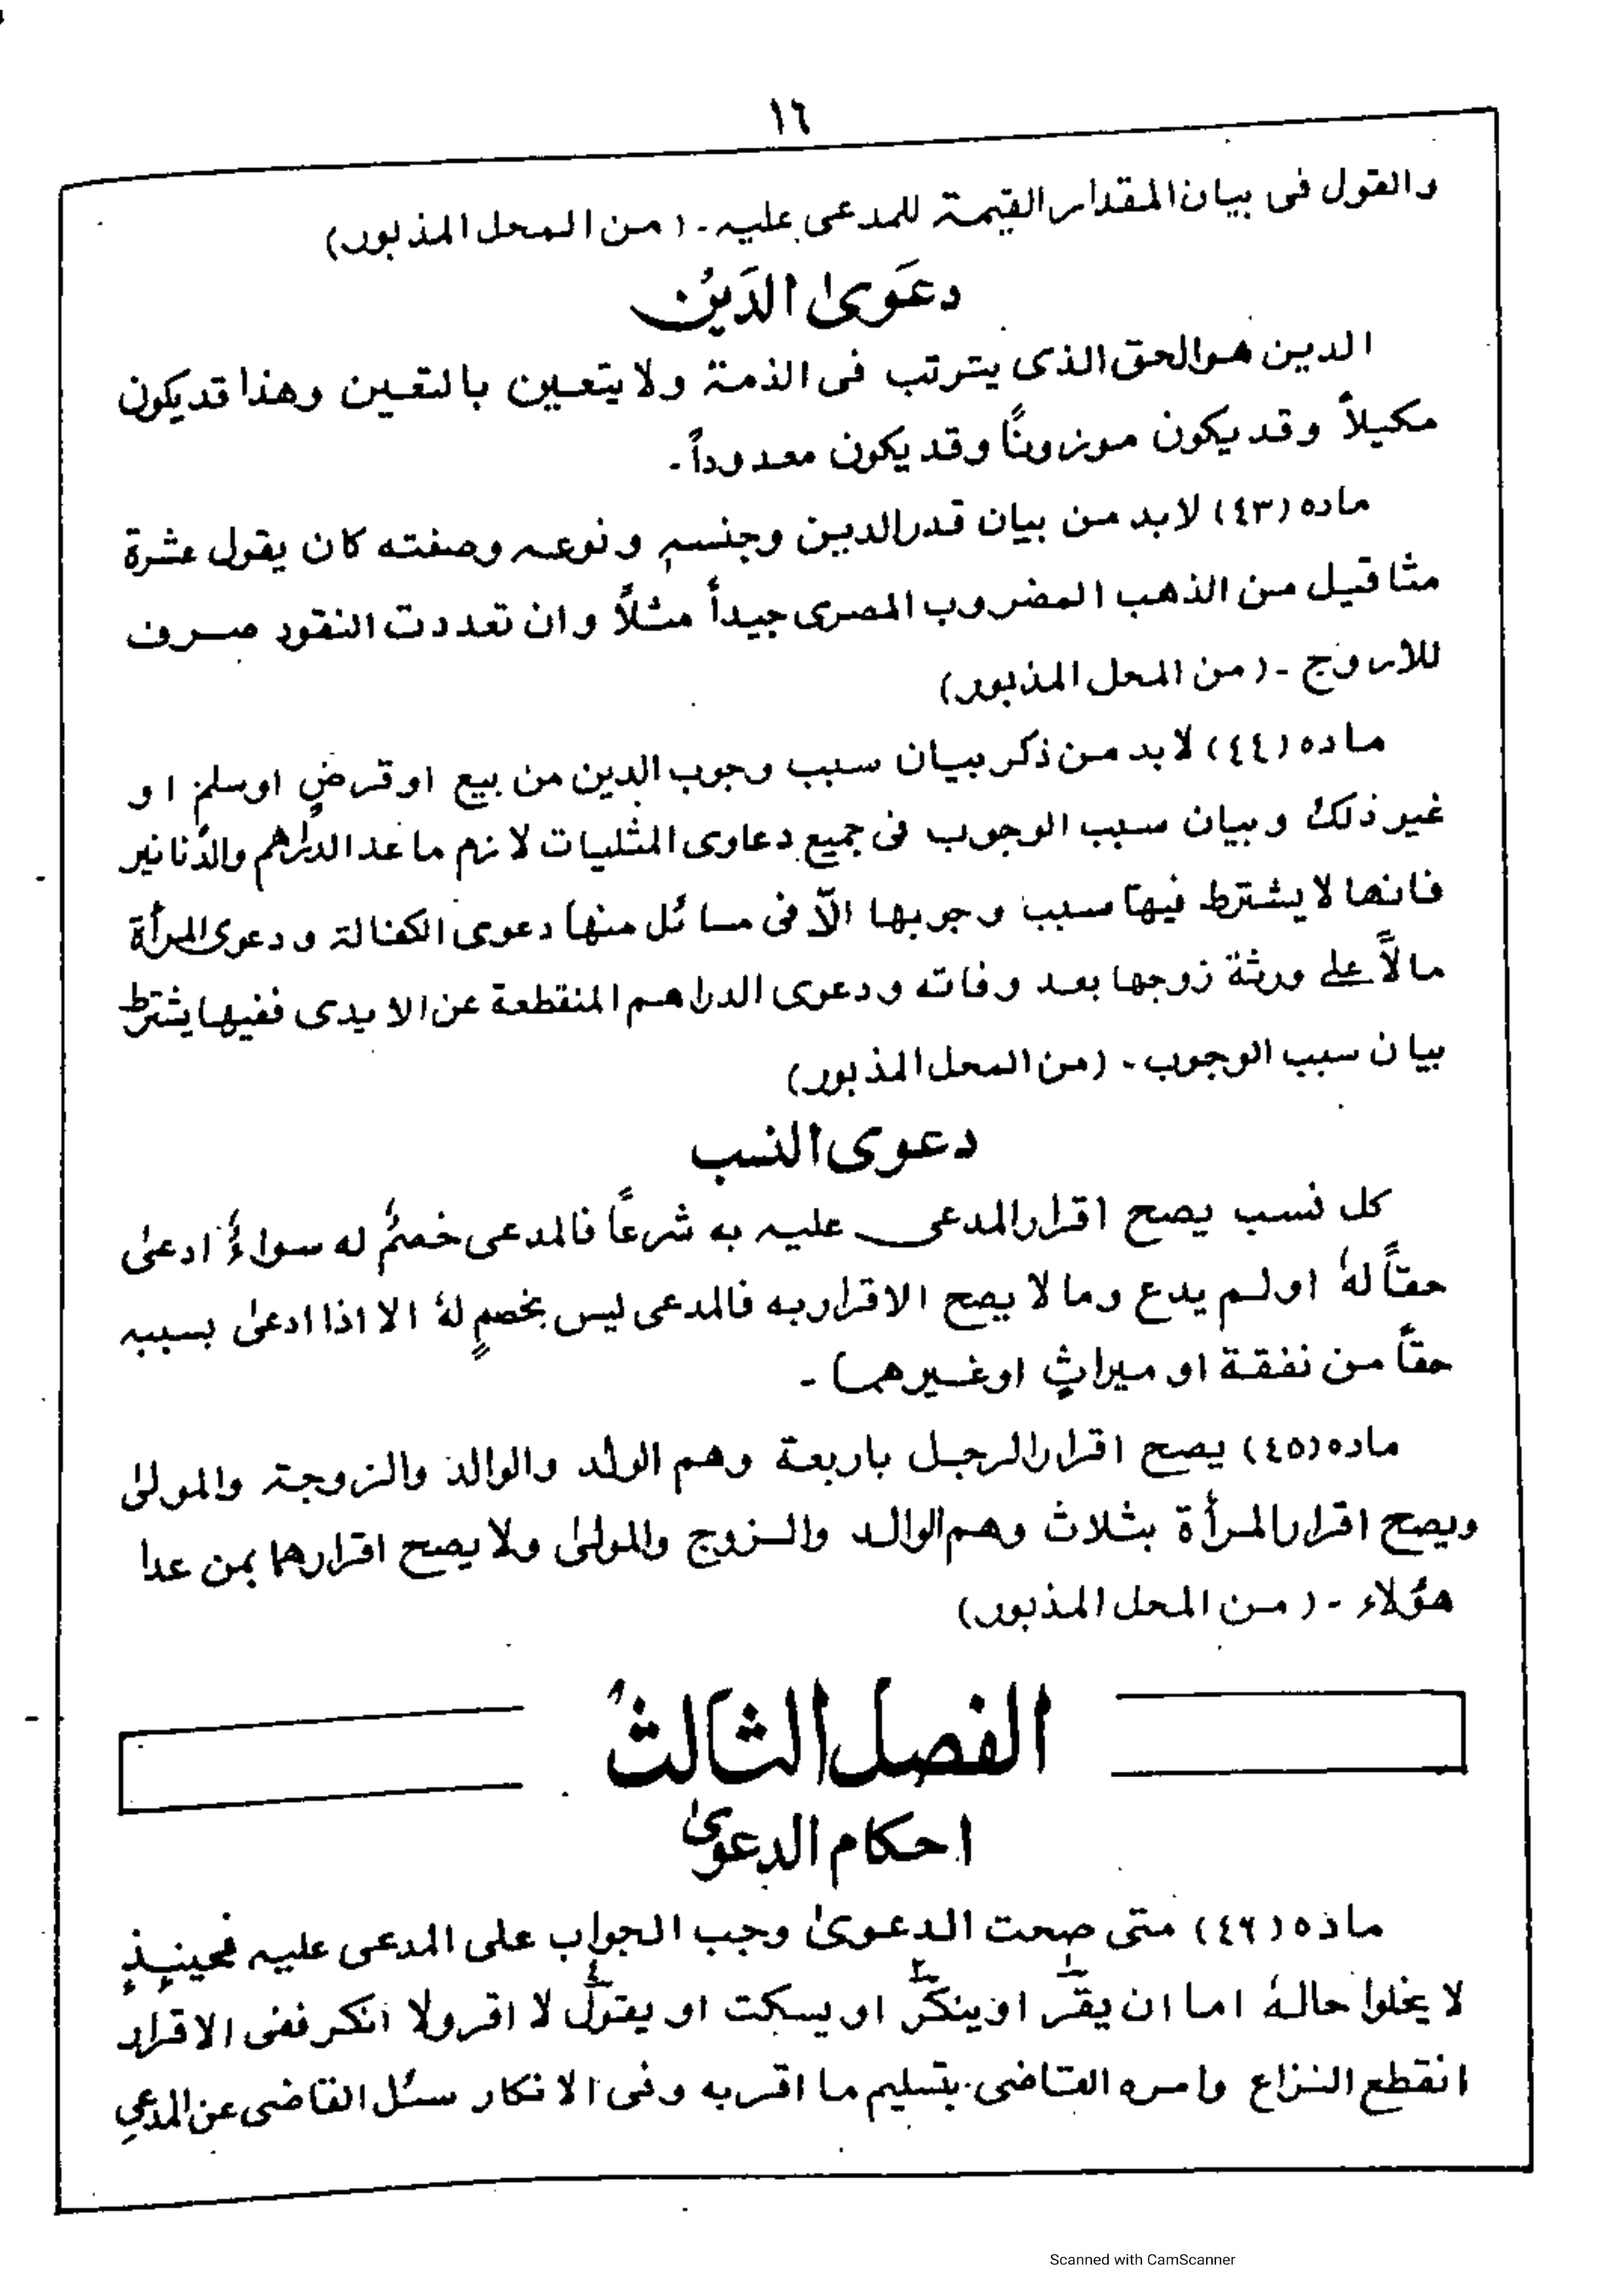 ١٦
والقول فى بيان المقدار القيمة للمدعى عليه ـ (من المحل المذبور)
دعَوىٰ الدَين
الدين هو الحق الذى يترتب فى الذمة ولا يتعين بالتعين وهذا قد يكون
مكيلاً وقد يكون موزوناً وقد يكون معدوداً ـ
ماده (٤٣) لابد من بيان قدر الدين وجنسه ونوعه وصفته كان يقول عشرة
مثاقيل من الذهب المضروب المصرى جيداً مثلاً وان تعددت النقود صرف
للاروج ـ (من المحل المذبور)
ماده (٤٤) لابد من ذكر بيان سبب وجوب الدين من بيع او قرضٍ او سلم او
غير ذلك وبيان سبب الوجوب فى جميع دعاوى المثليات لازم ما عد الدراهم والدنانير
فانها لا يشترط فيها سبب وجوبها الّا فى مسائل منها دعوى الكفالة ودعوى المرأة
مالاً على ورثة زوجها بعد وفاته ودعوى الدراهم المنقطعة عن الايدى ففيها يشترط
بيان سبب الوجوب ـ (من المحل المذبور)
دعوى النسب
كل نسب يصح اقرار المدعى عليه به شرعاً فالمدعى خصمٌ له سواءٌ ادعىٰ
حقاً لهٗ او لم يدع وما لا يصح الاقرار به فالمدعى ليس بخصمٍ لهٗ الا اذا ادعىٰ بسببه
حقاً من نفقة او ميراثٍ او غيرهما ـ
ماده (٤٥) يصح اقرار الرجل باربعة وهم الولد والوالد والزوجة والمولىٰ
ويصح اقرار المرأة بثلاث وهم الوالد والزوج والمولىٰ ولا يصح اقرارها بمن عدا
هؤلاء ـ (من المحل المذبور)
الفصل الثالث
احكام الدعوىٰ
ماده (٤٦) متى صحت الدعوىٰ وجب الجواب على المدعى عليه فحينئذٍ
لا يخلوا حالهٗ اما ان يقر او ينكر او يسكت او يقول لا اقر ولا انكر ففى الاقرار
انقطع النزاع وامره القاضى بتسليم ما اقر به وفى الانكار سئل القاضى عن المدعى
Scanned with CamScanner